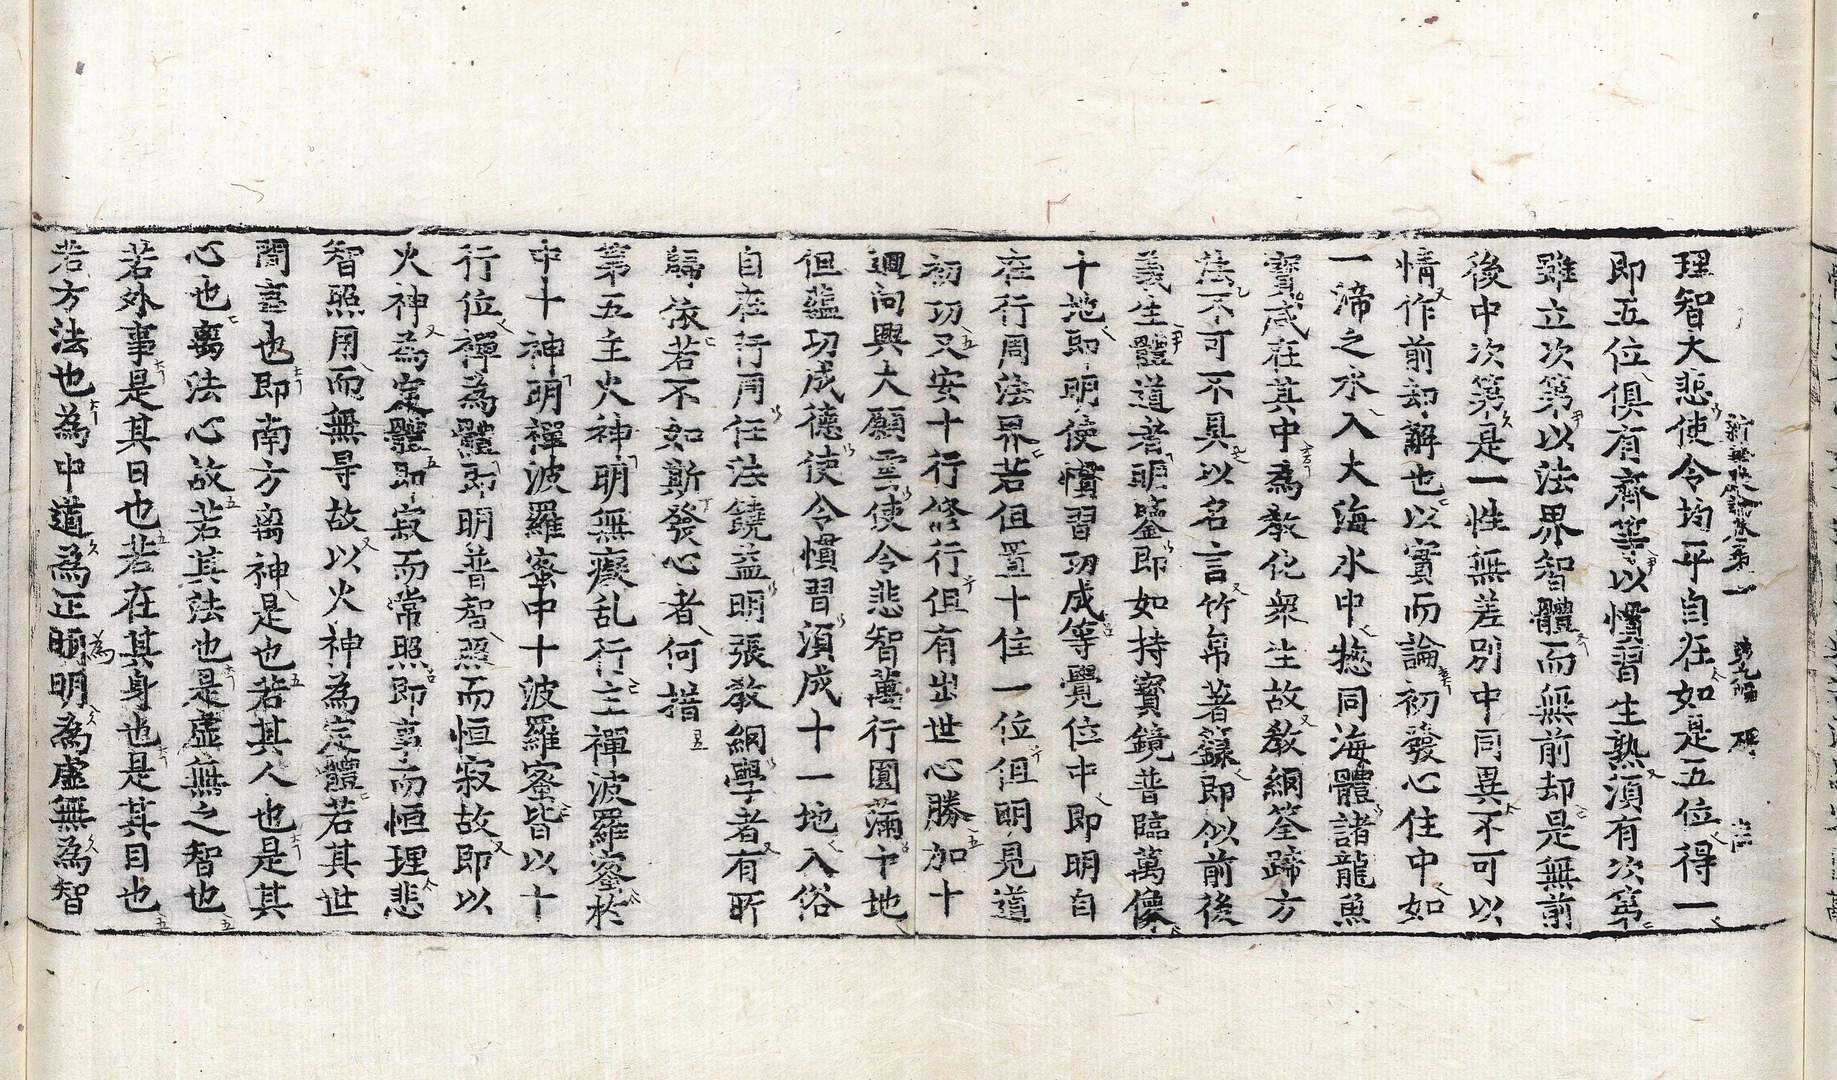 理智大悲使令均平自在如是五位得一
即五位俱有齊等以慣習生熟湏有次第
雖立次第以法界智體而無前却是無前
後中次第是一性無差別中同異不可以
情作前却解也以實而論初發心住中如
一渧之水入大海水中揔同海體諸龍魚
寶咸在其中為教化衆生故教網筌蹄方
法不可不具以名言竹帛著籙即似前後
義生體道者明鑒即如持寶鏡普臨萬像
十地即明使慣習功成等覺位中即明自
在行周法界若但置十住一位但明見道
初功又安十行修行但有出世心勝加十
迴向興大願雲使令悲智萬行圓滿十地
但蘊功成德使令慣習湏成十一地入俗
自在行用任法饒益明張教網學者有所
歸依若不如斯發心者何措
第五主火神明無癡乱行主禪波羅蜜於
中十神明禪波羅蜜中十波羅蜜皆以十
行位禪為體即明普智照而恒寂故即以
火神為定體即寂而常照即事而恒理悲
智照用而無㝵故以火神為定體若其世
間言也即南方离神是也若其人也是其
心也离法心故若其法也是虛無之智也
若外事是其日也若在其身也是其目也
若方法也為中道為正明為虛無為智
新華嚴論卷第一